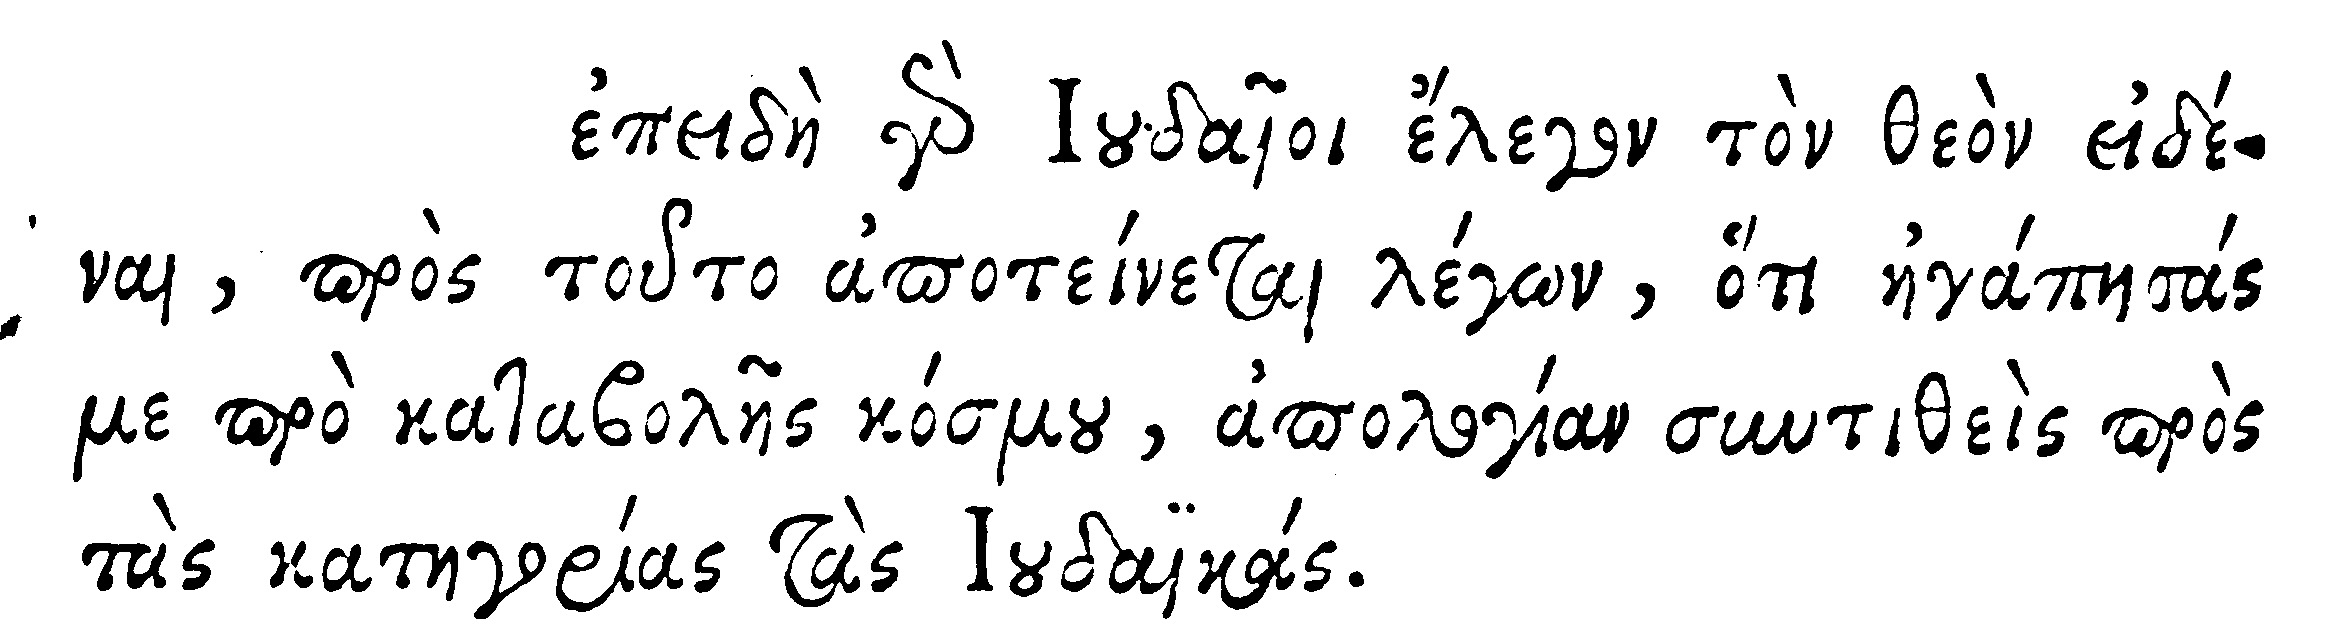 ἐπειδὴ γὰρ Ἰουδαῖοι ἔλεγον τὸν θεὸν εἰδέ-
ναι, πρὸς τοῦτο ἀποτείνεται λέγων, ὅτι ἠγάπητάς
με πρὸ καταβολῆς κόσμου, ἀπολογίαν συντιθεὶς πρὸς
τὰς κατηγορίας τὰς Ἰουδαϊκάς.